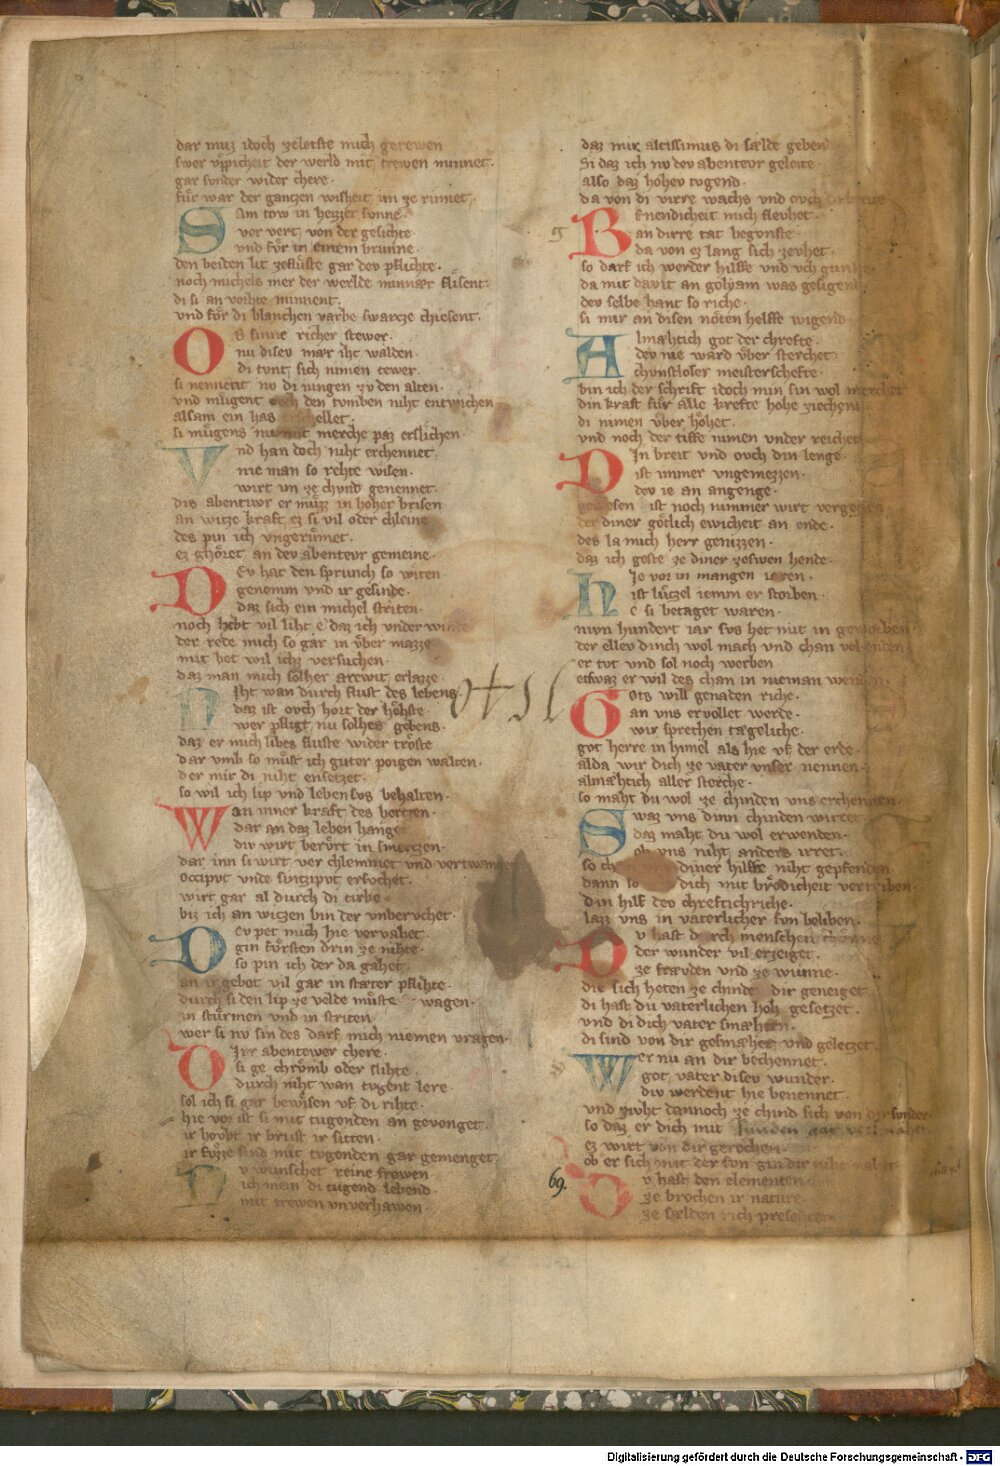 dar muz idoch zeletste mich gerewen
swer vͤppicheit der werld mit trewen minnet.
gar sunder wider chere.
fuͤr war der ganczen wisheit im ze rinnet.
Sam tow in heizzer sunne.
ver vert von der gesichte.
vnd fuͤr in einem brunne.
den beiden lit zefluste gar dev pflichte.
noch michels mer der werlde minnær flisent.
di si an vorhte minnent.
vnd fuͤr di blanchen varbe swarcze chiesent.
Ob sinne richer stewer.
nu disev mær iht walden.
di tvnt sich nimen tewer.
si nennent nv di iungen zv den alten.
vnd muͤgent ovch den tumben niht entwichen
alsam ein has ellet.
si muͤgens merche paz erslichen.
Vnd han doch niht erchennet.
nie man so rehte wisen.
wirt im ze chvnd genennet.
dis abentiwr er muͤzz in hoher brisen
an witze kraft ez si vil oder chleine
des pin ich vngeruͤmet.
ez ghoͤret an dev abentevr gemeine.
Dev hat den sprunch so witen
genomm vnd ir gesinde.
daz sich ein michel striten.
noch hebt vil liht e daz ich vnder winde
der rede mich so gar in vͤber mazze
mit bet wil ichz versuchen.
daz man mich solher arewit erlazze.
Niht wan durch flust des lebens.
daz ist ovch hort der hoͤhste.
wer pfligt nu solhes gebens.
daz er mich libes fluste wider troͤste
dar vmb so muͤst ich guter porgen walten.
der mir di niht ensetzet.
so wil ich lip vnd leben sus behalten.
Wan inner kraft des hertzen.
dar an daz leben hanget
div wirt beruͤrt in smertzen.
dar inn si wirt ver chlemmet vnd vertwanget
occiput vnde sinziput ersochet.
wirt gar al durch di cirbe.
biz ich an wiczen bin der vnberuchet.
Dev pet mich hie vervahet.
gin fuͤrsten drin ze nihte.
so pin ich der da gahet.
an ir gebot vil gar in stæter pflihte.
durch si den lip ze velde muͤste wagen.
in stuͤrmen vnd in striten
wer si nv sin des darf mich niemen vragen.
Dirr abentewer chere.
si ge chrumb oder slihte.
durch niht wan tvgent lere
sol ich si gar bewisen vf di rihte.
hie vor ist si mit tugenden an gevenget.
ir hovbt ir brust ir sitten.
ir fuͤzze sind mit tvgenden gar gemenget.
Nv wunschet reine frowen
ich mein di tugend lebend.
mit trewen vnverhawen.
daz mir altissimus di sælde geben
Si daz ich nv dev abentevr geleite.
also daz hohev tvgend.
da von di virre wachs vnd ovch
Bknendicheit mich flevhet.
an dirre tat begvnste.
da von ez lang sich zevhet.
so darf ich werder hilffe vnd vch
da mit davit an golyam was gesigent
dev selbe hant so riche.
si mir an disen noͤten helffe wigend.
Almæhtich got der chrefte.
dev nie ward vͤber sterchet.
chvnstloser meisterschefte.
bin ich der schrift idoch min sin wol merchet
din kraft fuͤr alle krefte hohe ziechent
di nimen vͤber hoͤhet.
vnd noch der tiffe nimen vnder reichet
Din breit vnd ovch din lenge
ist immer vngemezzen.
dev ie an angenge.
gewesen ist noch nimmer wirt
der diner goͤtlich ewicheit an ende.
des la mich herr genizzen.
daz ich geste ze diner zeswen hende.
Hie vor in mangen iaren.
ist luͤtzel iemm er storben.
e si betaget waren.
nivn hundert iar svs het mit in geworben
der ellev dinch wol mach vnd chan volenden
er tvt vnd sol noch werben
etswaz er wil des chan in nieman wenden.
Gots will genaden riche.
an vns ervollet werde.
wir sprechen tægeliche.
got herre in himel als hie vf der erde.
alda wir dich ze vater vnser nennen.
almæhtich aller sterche.
so maht du wol ze chinden vns erchennen.
Swaz vns dinn chinden wirret
daz maht du wol erwenden.
ob vns niht anders irret.
so diner hilffe niht gepfenden
dann so dich mit broͤdicheit vertriben.
din hilf dev chreftichriche.
lazz vns in vaterlicher sun beliben.
Dv hast durch menschen
der wunder vil erzeiget.
ze fræuden vnd ze wunne.
die sich heten ze chinde dir geneiget
di hast du vaterlichen hoh gesetzet.
vnd di dich vater smæhten.
di sind von dir gesmæhet vnd geletzet.
Wer nu an dir bechennet.
got vater disev wunder.
div werdent hie benennet.
vnd zivht dannoch ze chind sich von dir sunder
so daz er dich mit sunden gar
ez wirt von dir gerochen.
ob er sich mit der sun
69.
Dv hast den elementen
ze brochen ir nature.
ze sælden rich presenten
Digitalisierung gefördert durch die Deutsche Forschungsgemeinschaft - DFG